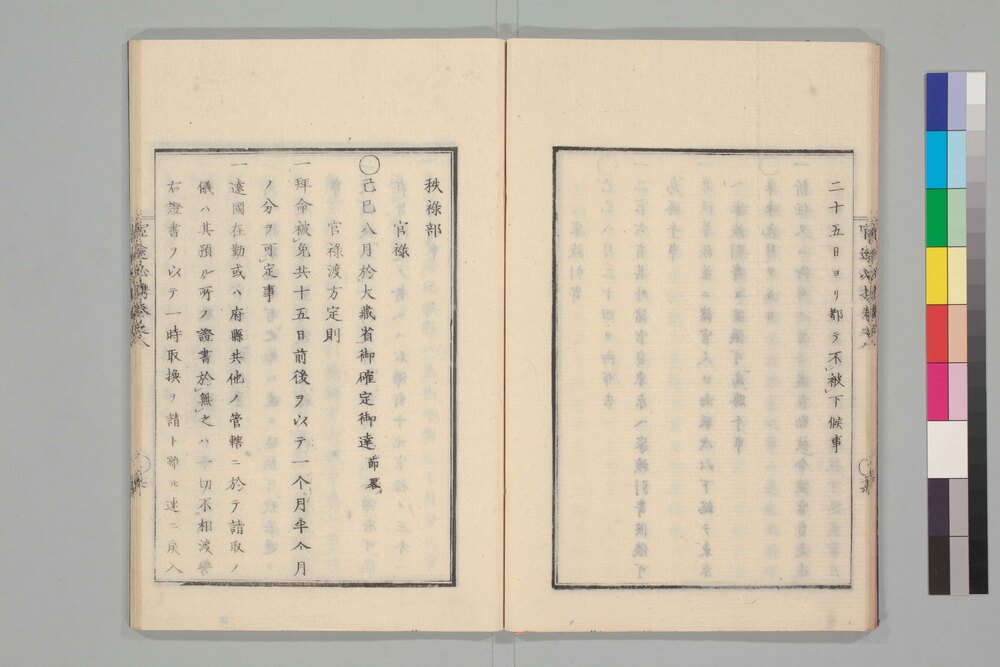 二十五日ヨリ都テ不被下候事
秩祿部
官祿
〇己巳八月於大藏省御確定御達節畧
官祿渡方定則
一拜命被免共十五日前後ヲ以テ一个月半个月
ノ分ヲ可定事
一遠國在勤或ハ府縣其他ノ管轄ニ於テ請取ノ
儀ハ其預ル所ノ證書於無之ハ一切不相渡
右證書ヲ以テ一時取換ヲ請ト雖ヒ速ニ戻入